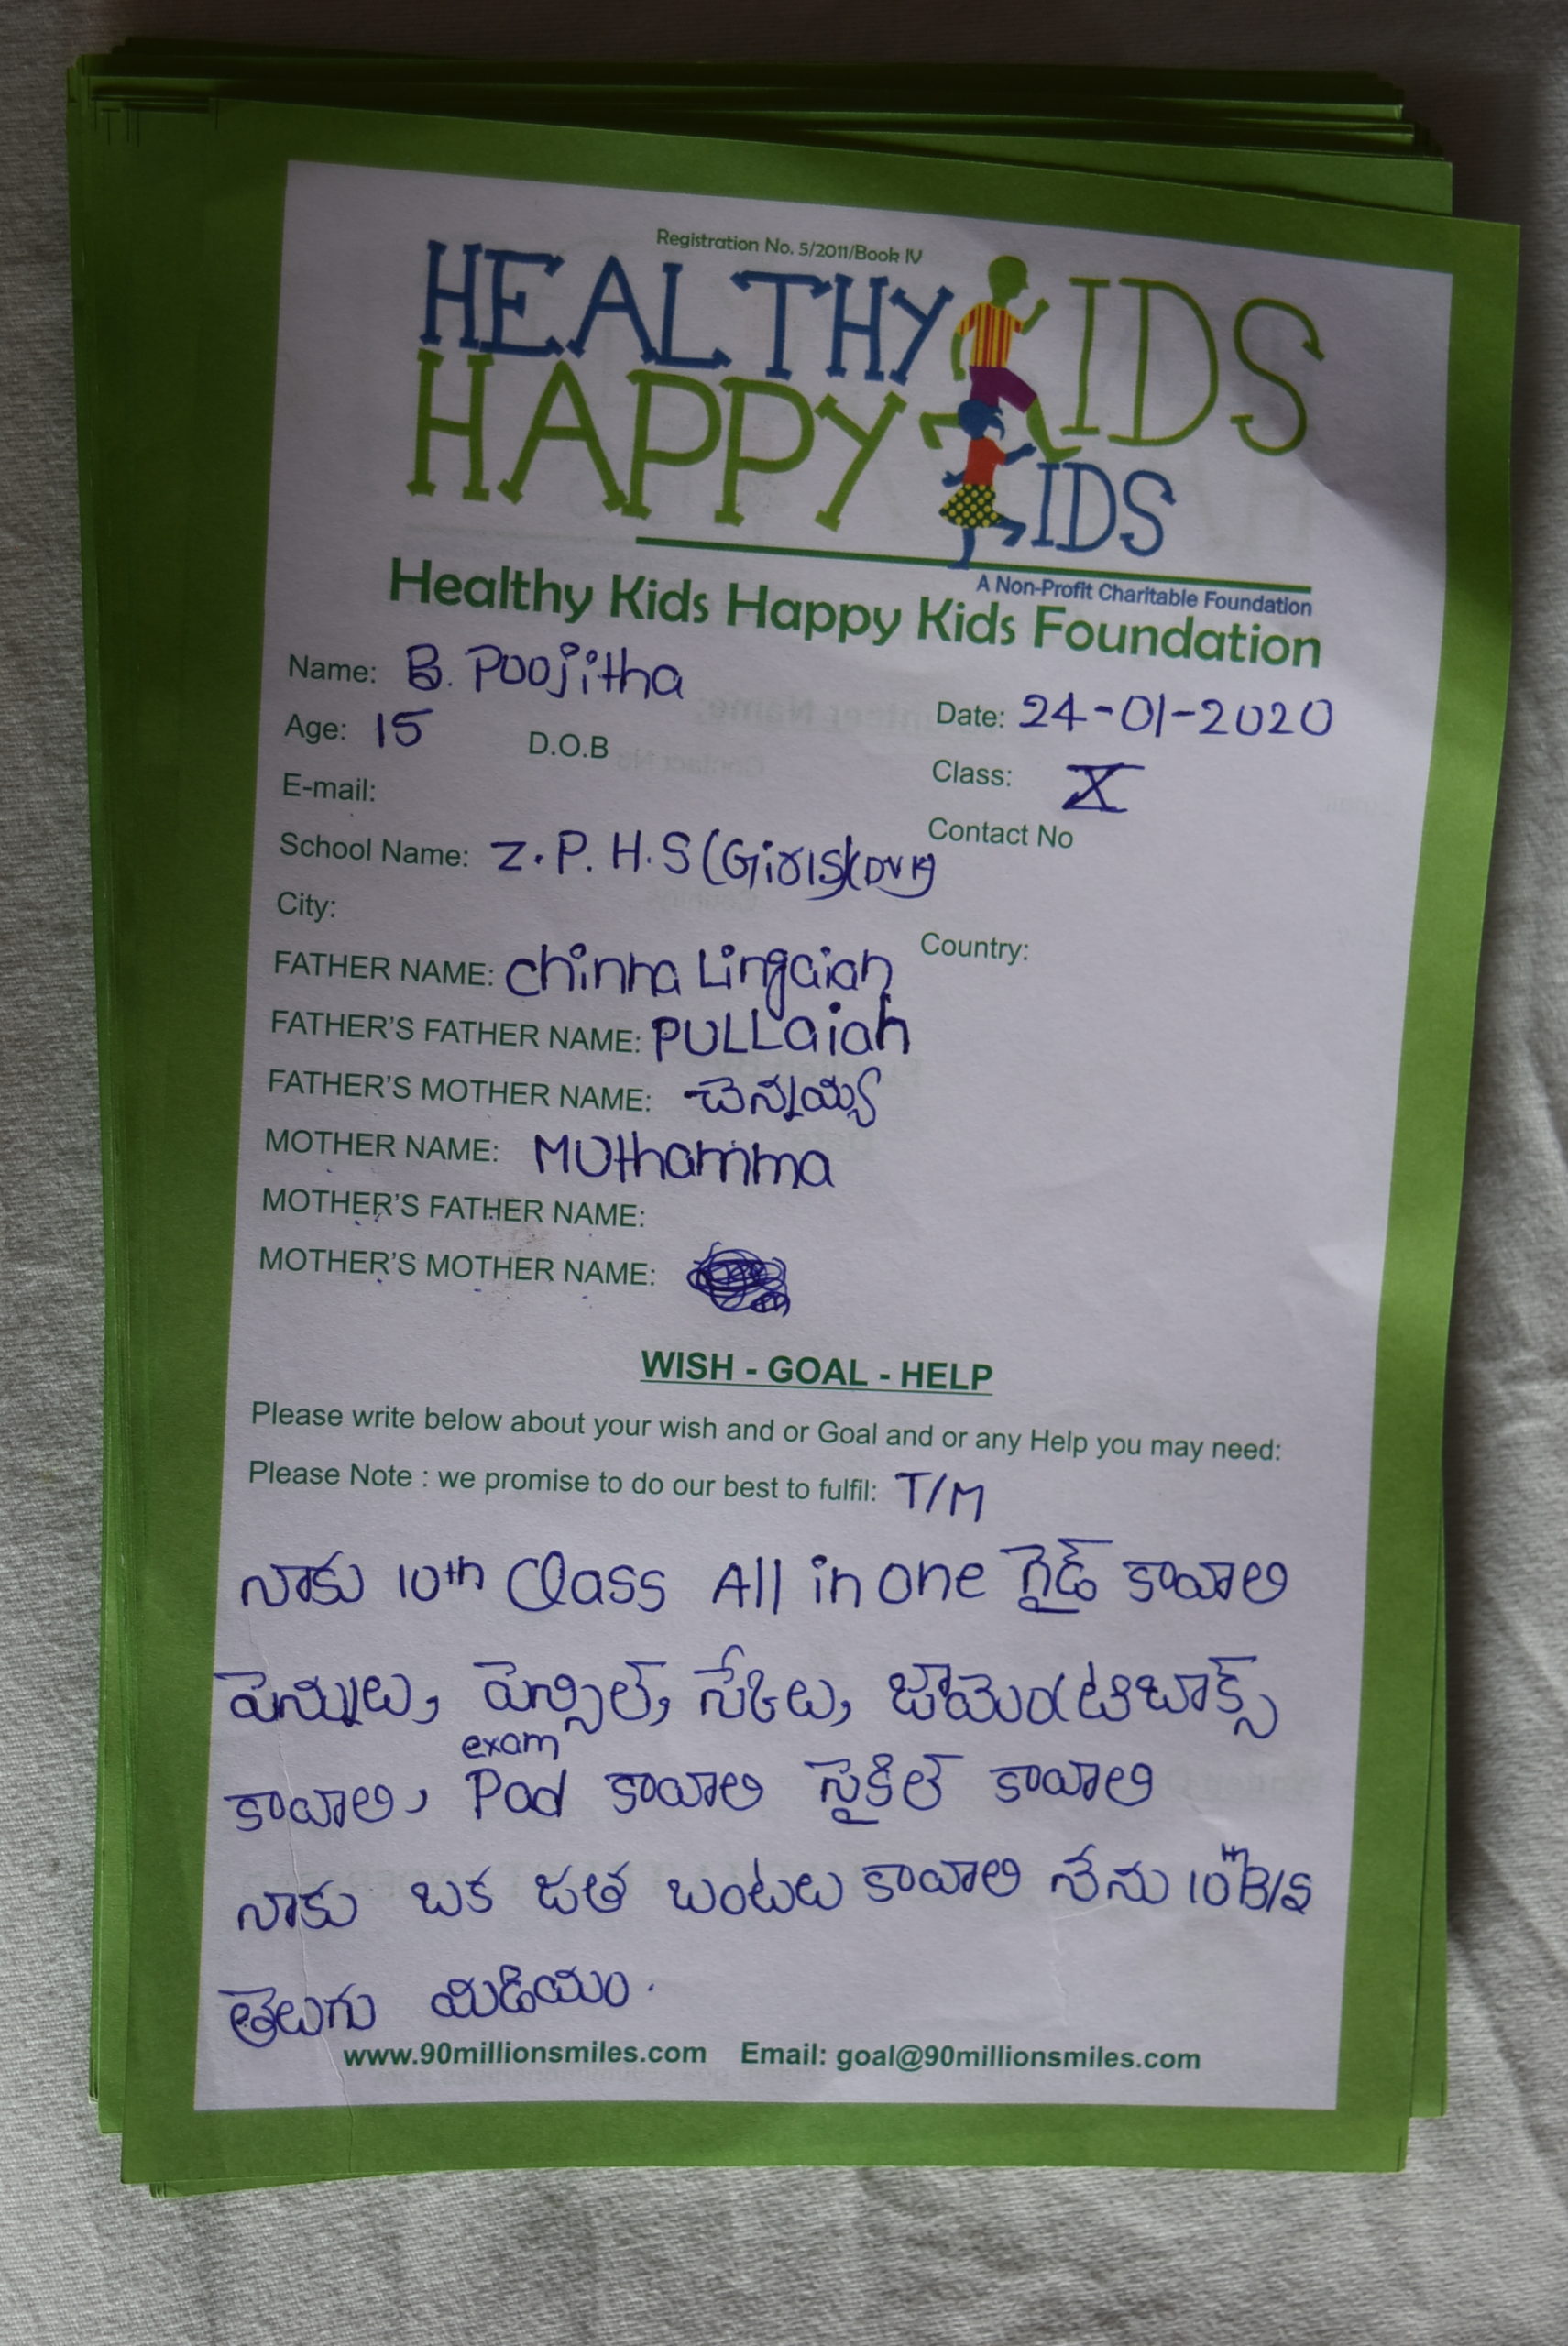 Registration No. 5/2011/Book IV
HEALTHY KIDS
HAPPY KIDS
A Non-Profit Charitable Foundation
Healthy Kids Happy Kids Foundation
Name: B. Poojitha
Date: 24-01-2020
Age: 15 D.O.B
Class: X
E-mail:
Contact No
School Name: Z.P.H.S (Girls)(DVK)
City:
Country:
FATHER NAME: Chinna Lingaiah
FATHER'S FATHER NAME: PULLaiah
FATHER'S MOTHER NAME: చెన్నయ్య
MOTHER NAME: MUthamma
MOTHER'S FATHER NAME:
MOTHER'S MOTHER NAME:
WISH - GOAL - HELP
Please write below about your wish and or Goal and or any Help you may need:
Please Note : we promise to do our best to fulfil: T/M
నాకు 10th Class All in one గైడ్ కావాలి
పెన్నులు, పెన్సిల్, స్కేలు, జామెంటిబాక్స్
కావాలి, exam Pad కావాలి సైకిల్ కావాలి
నాకు ఒక జత బంటలు కావాలి నేను 10th B/S
తెలుగు మిడియం.
www.90millionsmiles.com Email: goal@90millionsmiles.com